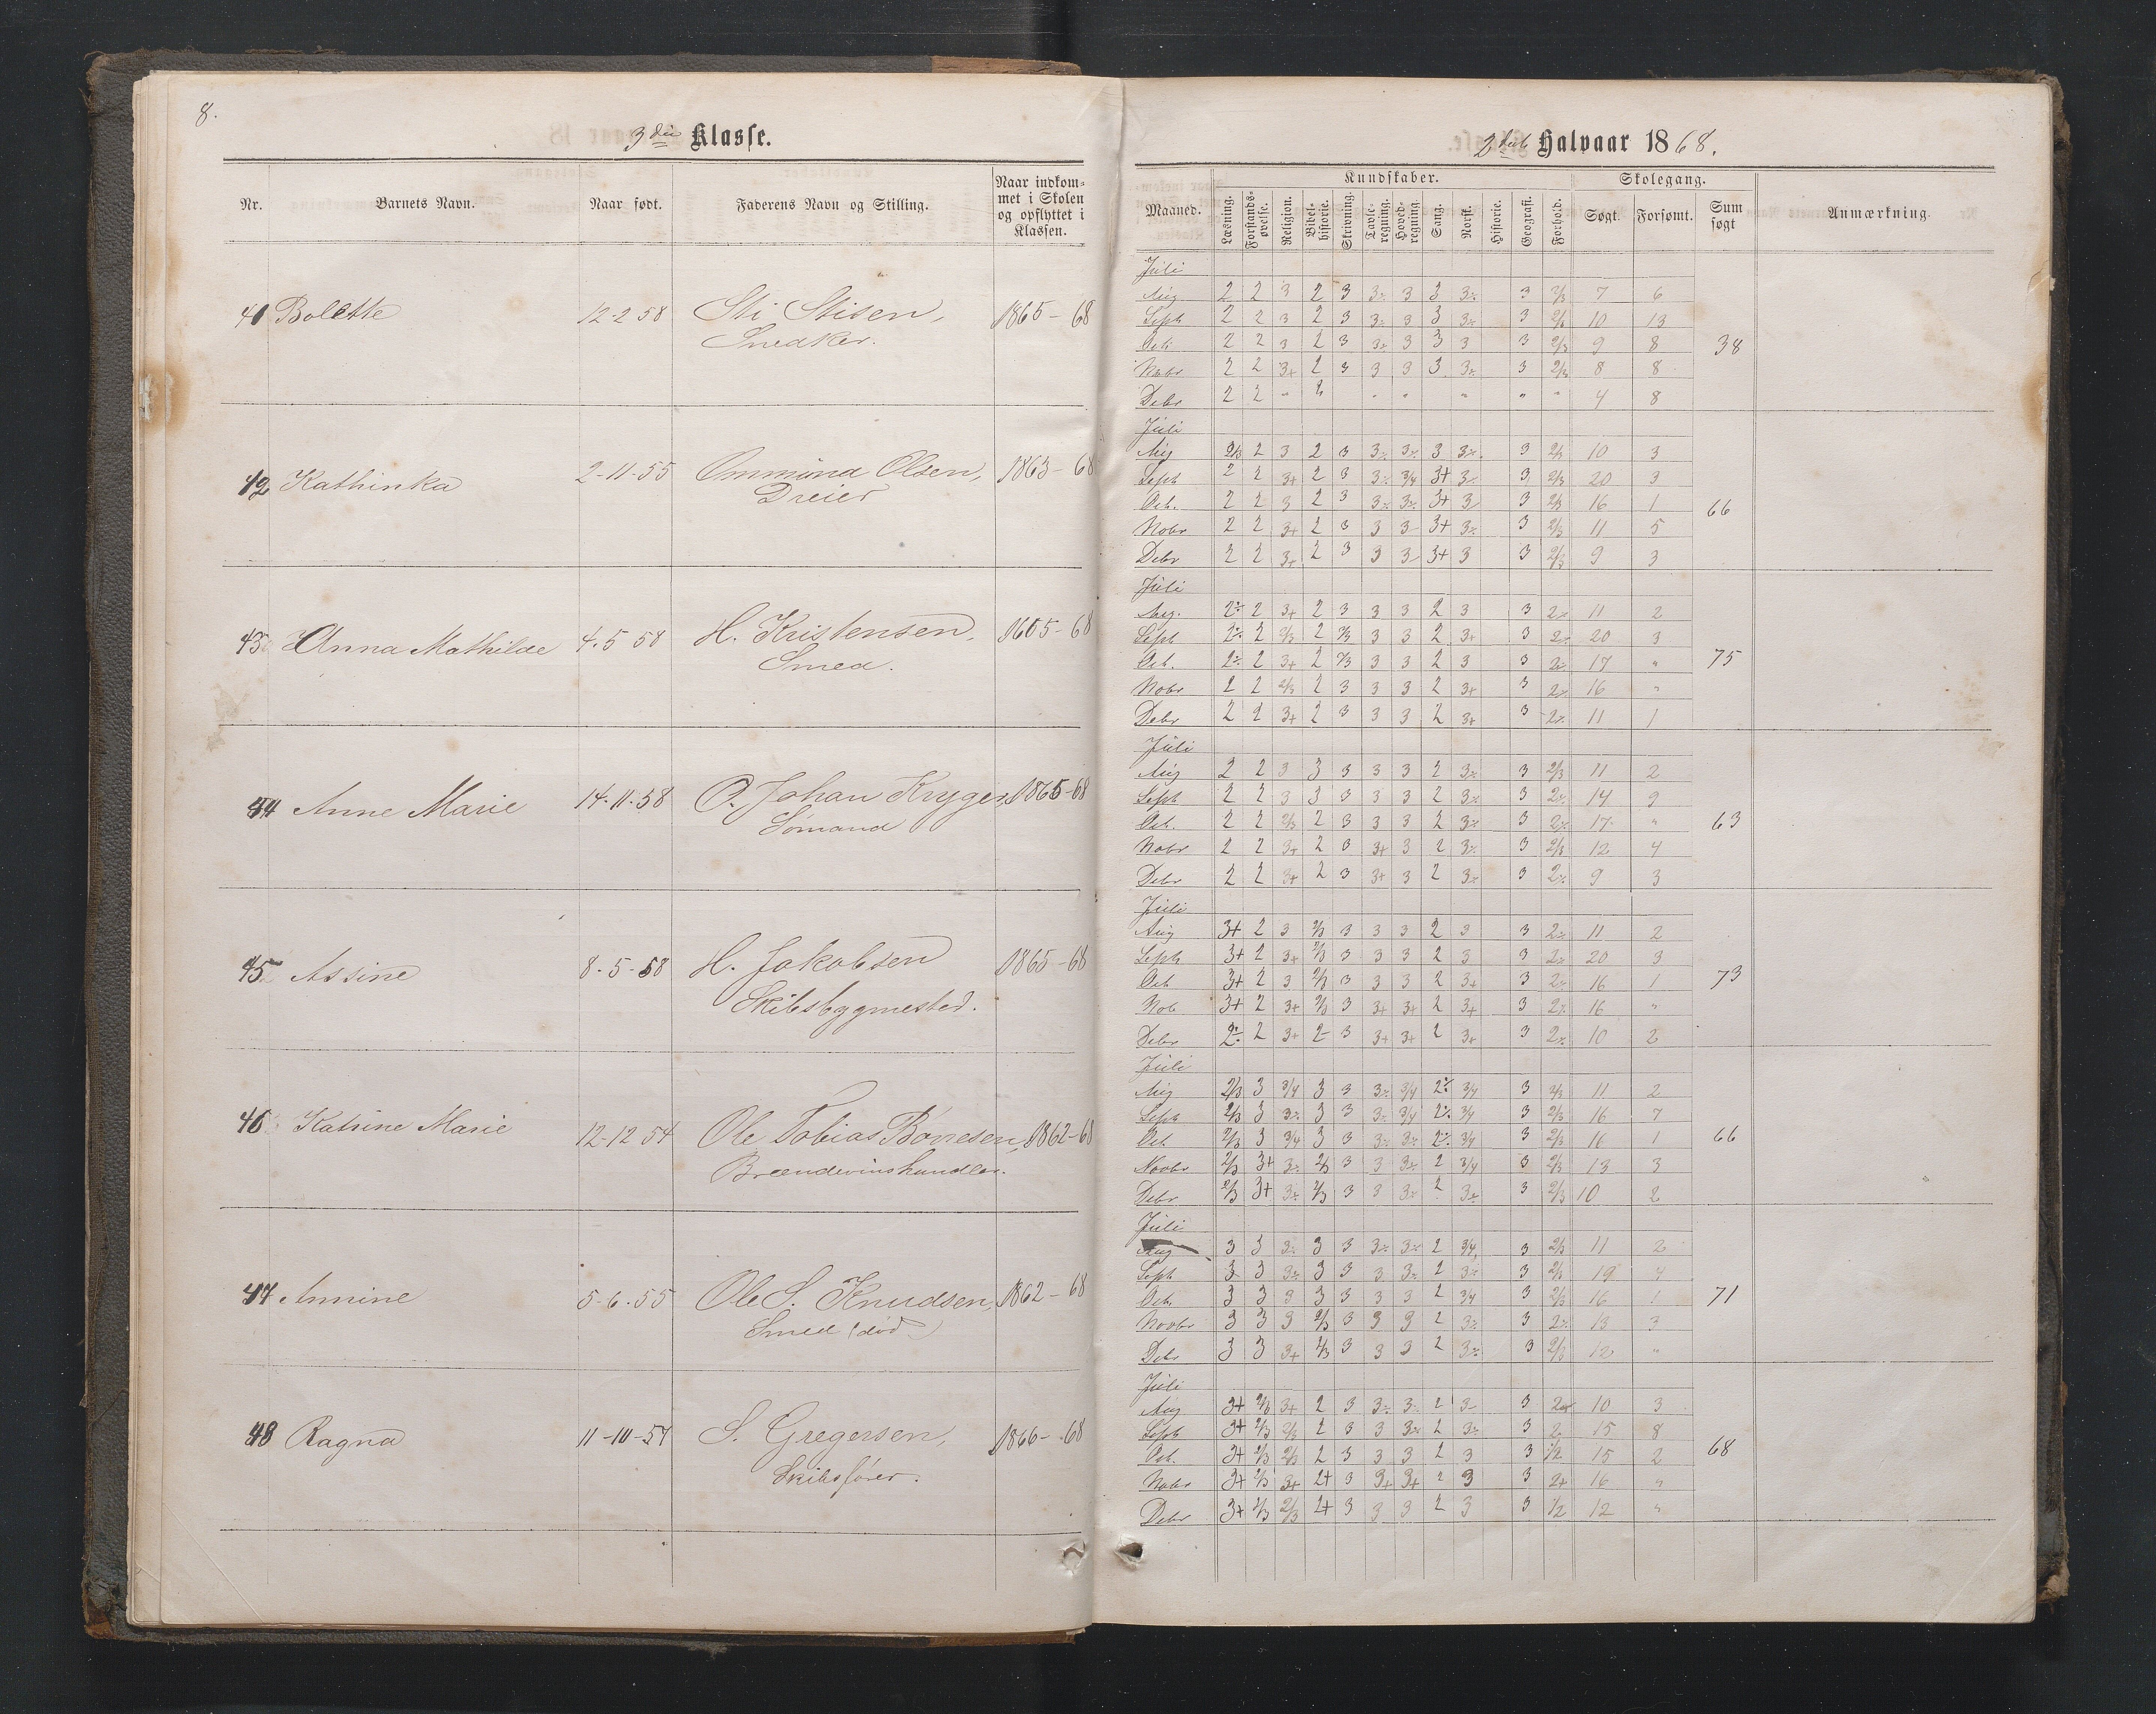 8.
3die Klasse.
Nr. Barnets Navn. Naar født. Faderens Navn og Stilling. Naar indkommet i Skolen og opflyttet i Klassen.
41 Bolette 12-2 58 Sti Stisen, 1865-68
Snedker.
42 Kathinka 2-11-55 Ommund Olsen, 1863-68
Dreier
43 Anna Mathilde 4-5 58 H. Kristensen, 1865-68
Smed.
44 Anne Marie 14-11-58 O. Johan Kryger, 1865-68
Sømand
45 Assine 8-5-58 H. Jakobsen 1865-68
Skibsbygmester.
46 Katrine Marie 12-12 54 Ole Tobias Børresen, 1862-68
Brændevinshandler.
47 Annine 5-6-55 Ole S. Knudsen, 1862-68
Smed (død)
48 Ragna 11-10-57 S. Gregersen, 1866-68
Skibsfører.
2det Halvaar 1868.
Kundskaber. Skolegang.
Maaned. Læsning. Forstandsøvelse. Religion. Bibelhistorie. Skrivning. Tavleregning. Hovedregning. Sang. Norsk. Historie. Geografi. Forhold. Søgt. Forsømt. Sum søgt Anmærkning.
Juli
Aug 2 2 3 2 3 3÷ 3 3 3÷ 3 2/3 7 6
Septb 2 2 3 2 3 3÷ 3 3 3÷ 3 2/3 10 13
Octb 2 2 3 2 3 3÷ 3 3 3 3 2/3 9 8 38
Novbr 2 2 3+ 2 3 3 3 3 3÷ 3 2/3 8 8
Debr 2 2 " 2 " " " " " 4 8
Juli
Aug 2/3 2 3 2 3 3÷ 3÷ 3 3÷ 3 2/3 10 3
Septb 2 2 3+ 2 3 3÷ 3/4 3+ 3 3 2/3 20 3
Octb. 2 2 3 2 3 3÷ 3÷ 3+ 3 3 2/3 16 1 66
Novbr 2 2 3+ 2 3 3 3 3+ 3÷ 3 2/3 11 5
Debr 2 2 3+ 2 3 3 3 3+ 3 3 2/3 9 3
Juli
Aug. 2÷ 2 3+ 2 3 3 3 2 3 3 2÷ 11 2
Septb 2÷ 2 2/3 2 2/3 3 3 2 3+ 3 2÷ 20 3
Octb. 2÷ 2 3+ 2 2/3 3 3 2 3 3 2÷ 17 " 75
Novbr 2 2 2/3 2 3 3 3 2 3+ 3 2÷ 16 "
Debr 2 2 3+ 2 3 3 3 2 3+ 3 2÷ 11 1
Juli
Aug 2 2 3 3 3 3 3 2 3÷ 3 2/3 11 2
Septb 2 2 3 3 3 3 3 2 3÷ 3 2÷ 14 9
Octb. 2 2 2/3 2 3 3 3 2 3÷ 3 2÷ 17 " 63
Novbr 2 2 3+ 2 3 3+ 3 2 3÷ 3 2/3 12 4
Debr 2 2 3+ 2 3 3+ 3 2 3÷ 3 2÷ 9 3
Juli
Aug 3+ 2 3 2/3 3 3 3 2 3 3 2÷ 11 2
Septb 3+ 2 3+ 2/3 3 3 3 2 3 3 2÷ 20 3
Octb 3+ 2 3 2/3 3 3 3 2 3+ 3 2÷ 16 1 73
Nob 3+ 2 3+ 2/3 3 3+ 3+ 2 3+ 3 2÷ 16 "
Debr 2÷ 2 3+ 2 3 3+ 3+ 2 3+ 3 2÷ 10 2
Juli
Aug 2/3 3 3/4 3 3 3÷ 3/4 2÷ 3/4 3 2/3 11 2
Septb 2/3 3 3÷ 3 3 3÷ 3/4 2÷ 3/4 3 2/3 16 7
Octb. 2/3 3 3/4 3 3 3÷ 3÷ 2÷ 3/4 3 2/3 16 1 66
Novbr 2/3 3+ 3÷ 2/3 3 3 3÷ 2 3/4 3 2/3 13 3
Debr 2/3 3+ 3÷ 2/3 3 3 3÷ 2 3÷ 3 2/3 10 2
Juli
Aug 3 3 3÷ 3 3 3÷ 3÷ 2 3/4 3 2/3 11 2
Septb 3 3 3÷ 3 3 3 3÷ 2 3÷ 3 2/3 19 4
Octb. 3 3 3 3 3 3 3 2 3/4 3 2/3 16 1 71
Novbr 3 3 3 2/3 3 3 3 2 3÷ 3 2÷ 13 3
Debr 3 3 3+ 2/3 3 3 3 2 3÷ 3 2/3 12 "
Juli
Aug 3+ 2/3 3+ 2 3 3÷ 3 2 3 3 2 10 3
Septb 3+ 2/3 2/3 2 3 3 3÷ 2 3÷ 3 2 15 8
Octb. 3+ 2/3 2/3 2 3 3 3 2 3 3 1/2 15 2 68
Novbr 3+ 2/3 3+ 2+ 3 3+ 3+ 2 3 3 2+ 16 "
Debr 3+ 2/3 2/3 2+ 3 3 3 2 3 3 1/2 12 "